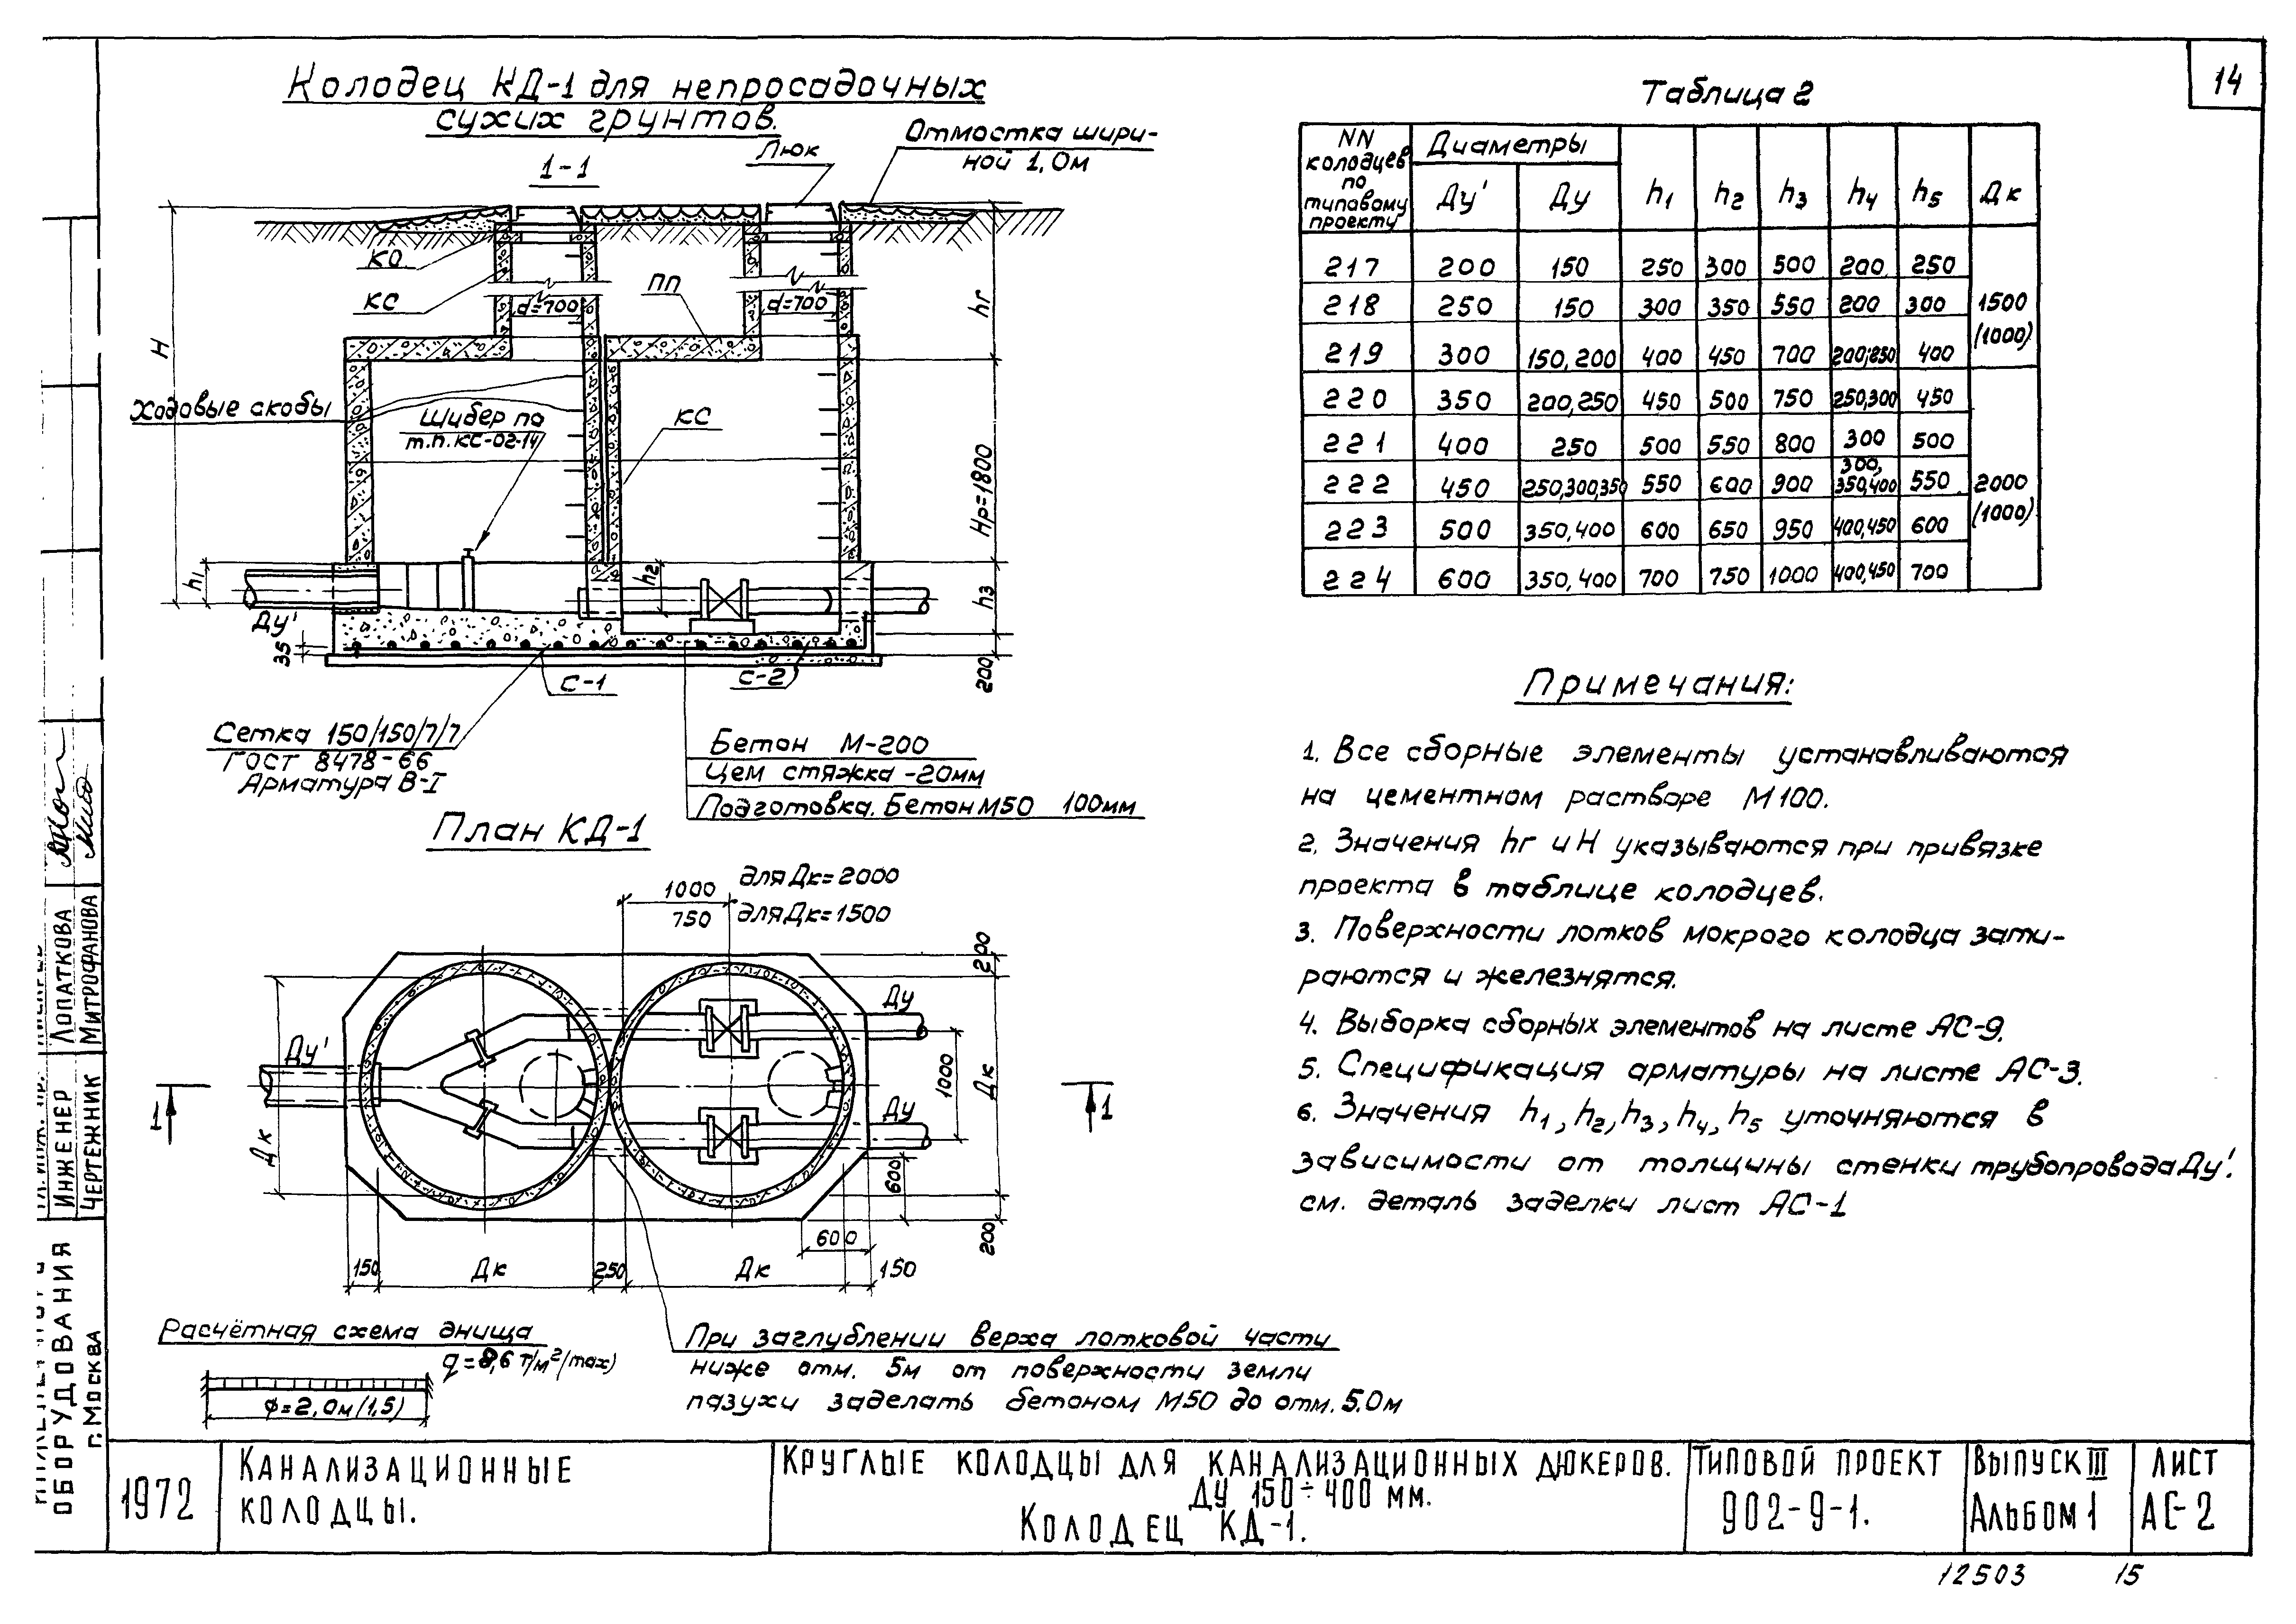 14
Колодец КД-1 для непросадочных
сухих грунтов.
1-1
Люк
Отмостка шири-
ной 1,0м
КО
КС
d=700
ПП
d=700
hг
H
Ходовые скобы
Шибер по
т.п. КС-02-14
КС
Hр=1800
h1
h2
h3
Ду'
35
200
С-1
С-2
Сетка 150/150/7/7
ГОСТ 8478-66
Арматура В-I
Бетон М-200
Цем стяжка -20мм
Подготовка. Бетон М50 100мм
План КД-1
1000 для Дк=2000
750 для Дк=1500
200
Ду
Ду'
1000
Дк
Ду
Дк
1
1
600
200
600
150
Дк
250
Дк
150
Расчётная схема днища
q=8,6 т/м²/max)
ϕ=2,0м(1,5)
При заглублении верха лотковой части
ниже отм. 5м от поверхности земли
пазухи заделать бетоном М50 до отм. 5.0м
Таблица 2
NN колодцев по типовому проекту
Диаметры
Ду' Ду h1 h2 h3 h4 h5 Дк
217 200 150 250 300 500 200 250
218 250 150 300 350 550 200 300
1500 (1000)
219 300 150,200 400 450 700 200;250 400
220 350 200,250 450 500 750 250,300 450
221 400 250 500 550 800 300 500
222 450 250,300,350 550 600 900 300, 350,400 550
2000 (1000)
223 500 350,400 600 650 950 400,450 600
224 600 350,400 700 750 1000 400,450 700
Примечания:
1. Все сборные элементы устанавливаются
на цементном растворе М100.
2. Значения hг и H указываются при привязке
проекта в таблице колодцев.
3. Поверхности лотков мокрого колодца зати-
раются и железнятся.
4. Выборка сборных элементов на листе АС-9.
5. Спецификация арматуры на листе АС-3.
6. Значения h1, h2, h3, h4, h5 уточняются в
зависимости от толщины стенки трубопровода Ду'.
см. деталь заделки лист АС-1
ИНЖЕНЕР ЛОПАТКОВА
ЧЕРТЕЖНИК МИТРОФАНОВА
ОБОРУДОВАНИЯ
г. МОСКВА
1972
КАНАЛИЗАЦИОННЫЕ
КОЛОДЦЫ.
КРУГЛЫЕ КОЛОДЦЫ ДЛЯ КАНАЛИЗАЦИОННЫХ ДЮКЕРОВ.
ДУ 150÷400 мм.
КОЛОДЕЦ КД-1.
ТИПОВОЙ ПРОЕКТ
902-9-1.
ВЫПУСК III
АЛЬБОМ 1
ЛИСТ
АС-2
12503 15